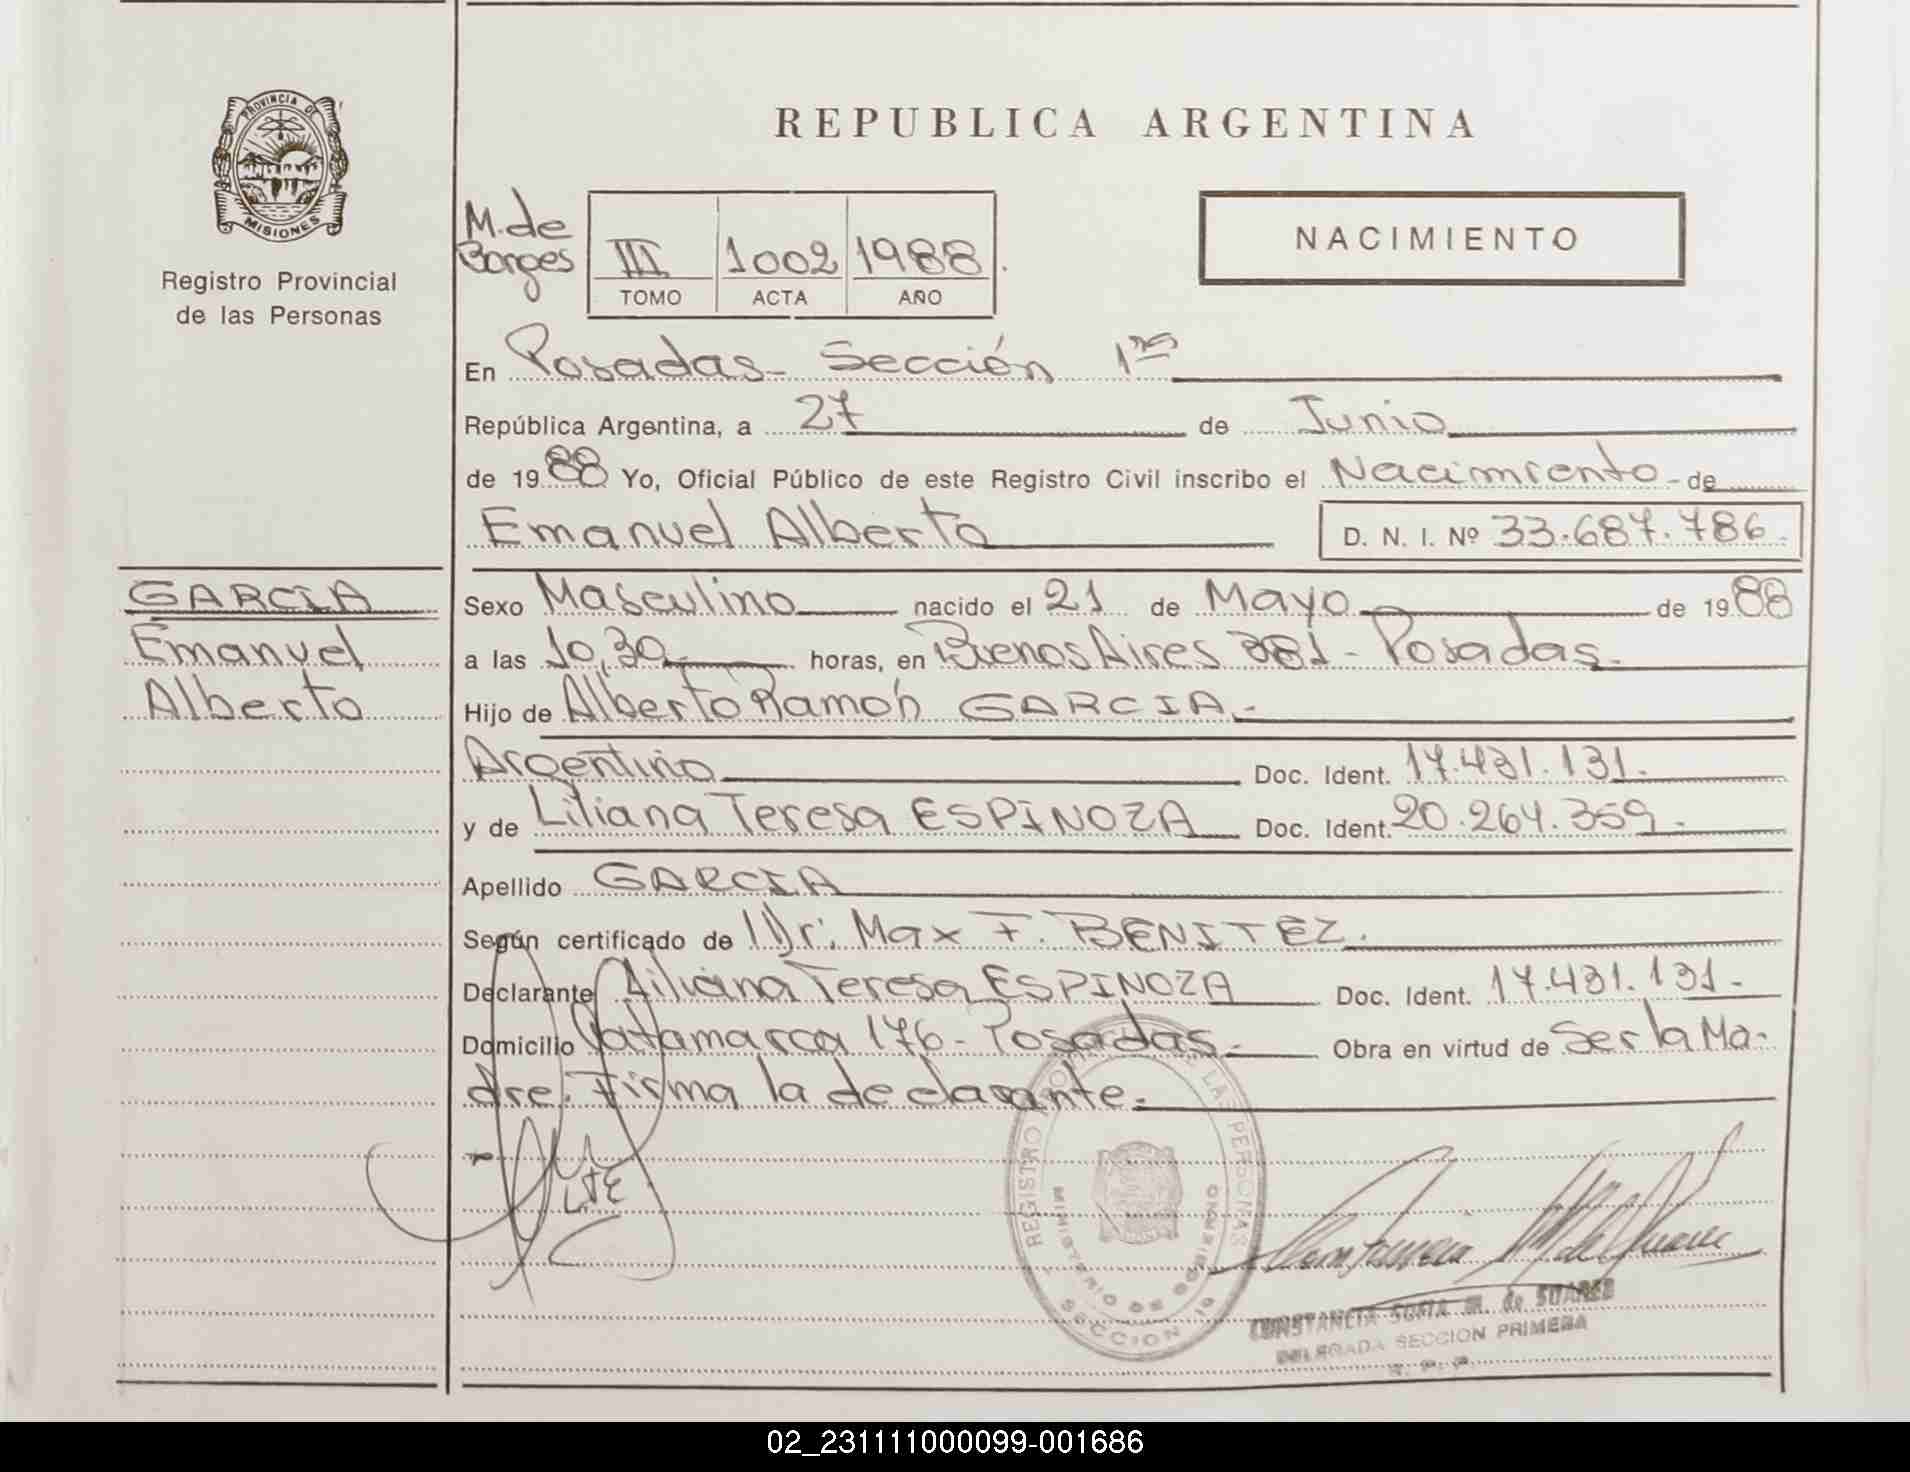 PROVINCIA DE
MISIONES
Registro Provincial
de las Personas
REPUBLICA ARGENTINA
M. de
Borges
III 1002 1988
TOMO ACTA AÑO
NACIMIENTO
En Posadas - Sección 1ra
República Argentina, a 27 de Junio
de 1988 Yo, Oficial Público de este Registro Civil inscribo el Nacimiento - de
Emanuel Alberto D. N. I. Nº 33.687.786.
GARCIA
Emanuel
Alberto
Sexo Masculino nacido el 21 de Mayo de 1988
a las 10,30 horas, en Buenos Aires 381 - Posadas.
Hijo de Alberto Ramón GARCIA.-
Argentino Doc. Ident. 17.431.131.
y de Liliana Teresa ESPINOZA Doc. Ident. 20.264.359.-
Apellido GARCIA
Según certificado de Dr: Max F. BENITEZ.
Declarante Liliana Teresa ESPINOZA Doc. Ident. 17.431.131.-
Domicilio Catamarca 176 - Posadas.- Obra en virtud de Ser la Ma-
dre. Firma la declarante.-
LTE
REGISTRO PROVINCIAL DE LAS PERSONAS
MINISTERIO DE GOBIERNO
SECCION 1a
Constancia M de Suarez
CONSTANCIA SOFIA M. de SUAREZ
DELEGADA SECCION PRIMERA
R. P. P.
02_231111000099-001686